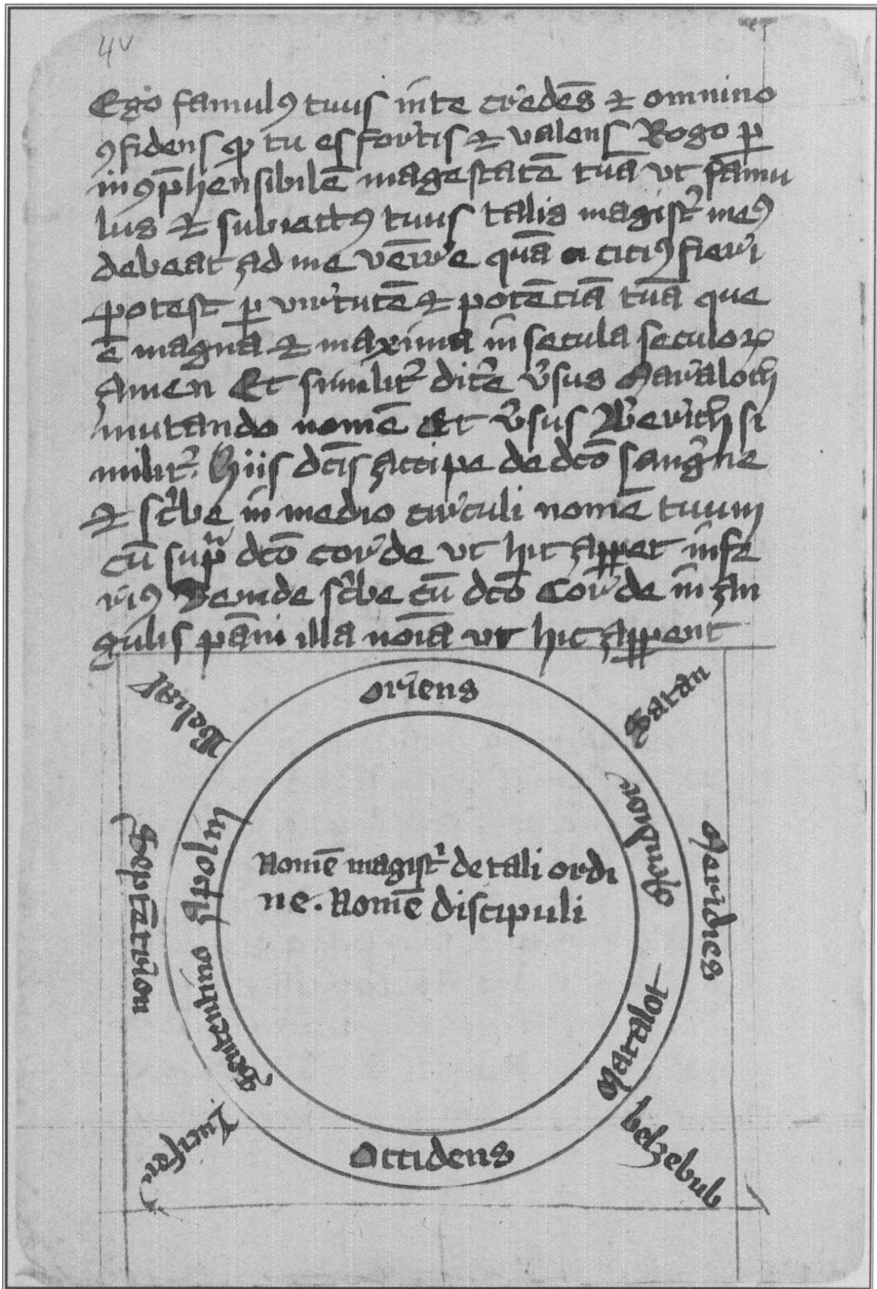 4v
Ego famulꝯ tuus in te credēs ⁊ omnino
ꝯfidens ꝙ tu es fortis ⁊ valens Rogo ꝑ
inꝯp̄hensibilē magestatē tuā vt famu
lus ⁊ subiectꝯ tuus talis magist̉ meꝯ
debeat ad me venire quā citiꝯ fieri
potest ꝑ virtutē ⁊ potēciā tuā que
ē magna ⁊ maxima in secula seculoꝝ
Amen Et similit̉ dic̉e v̉sus Maraloch
mutando nomē Et v̉sus Berich si
milit̉. Hiis dc̄is accipe de dc̄o sangꝰne
⁊ sc̉be in medio circuli nomē tuum
cū sup̄ dc̄o corde vt hic apꝑet infe
riꝯ Deinde sc̉be cū dc̄o corde in an
gulis pāni illa noīa vt hic apꝑent
Belial
Oriens
Satan
Septētrion
Meridies
Nomē magist̉ de tali ordi
ne. Nomē discipuli
Maralot
Lucifer
Occidens
belzebub